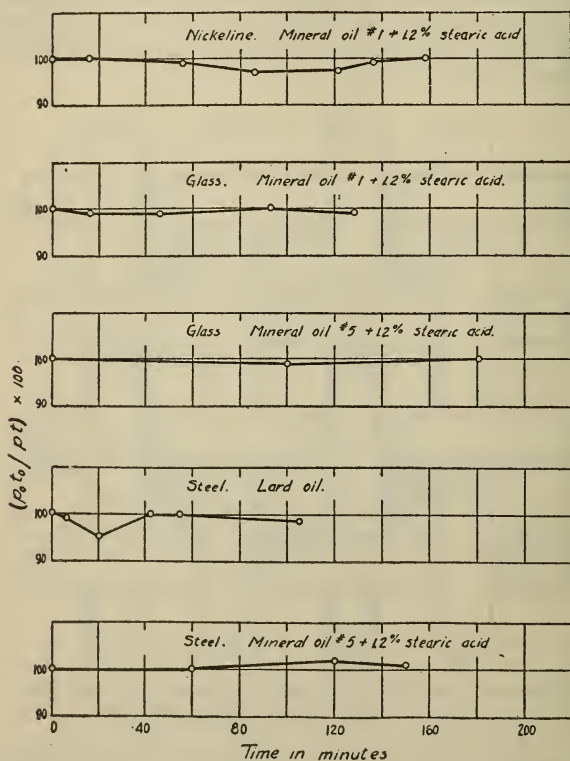 Nickeline. Mineral oil #1 + 1.2% stearic acid
100
90
Glass. Mineral oil #1 + 1.2% stearic acid.
100
90
Glass Mineral oil #5 + 1.2% stearic acid.
100
90
(p₀t₀/pt) × 100.
Steel. Lard oil.
100
90
Steel. Mineral oil #5 + 1.2% stearic acid
100
90
0 40 80 120 160 200
Time in minutes